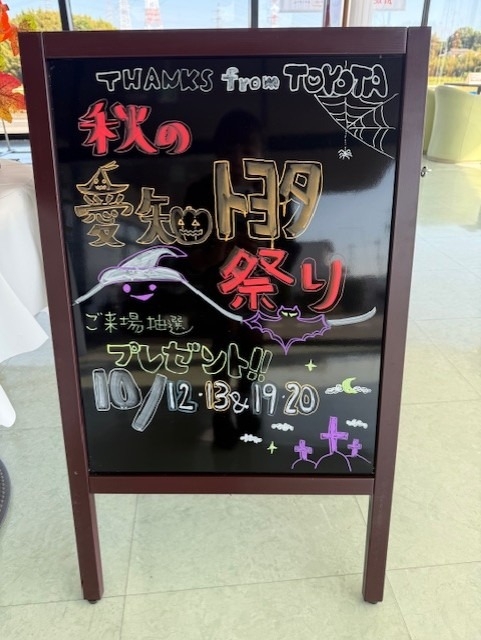 THANKS from TOYOTA
秋の
愛知トヨタ
祭り
ご来場抽選
プレゼント!!
10/12・13&19・20